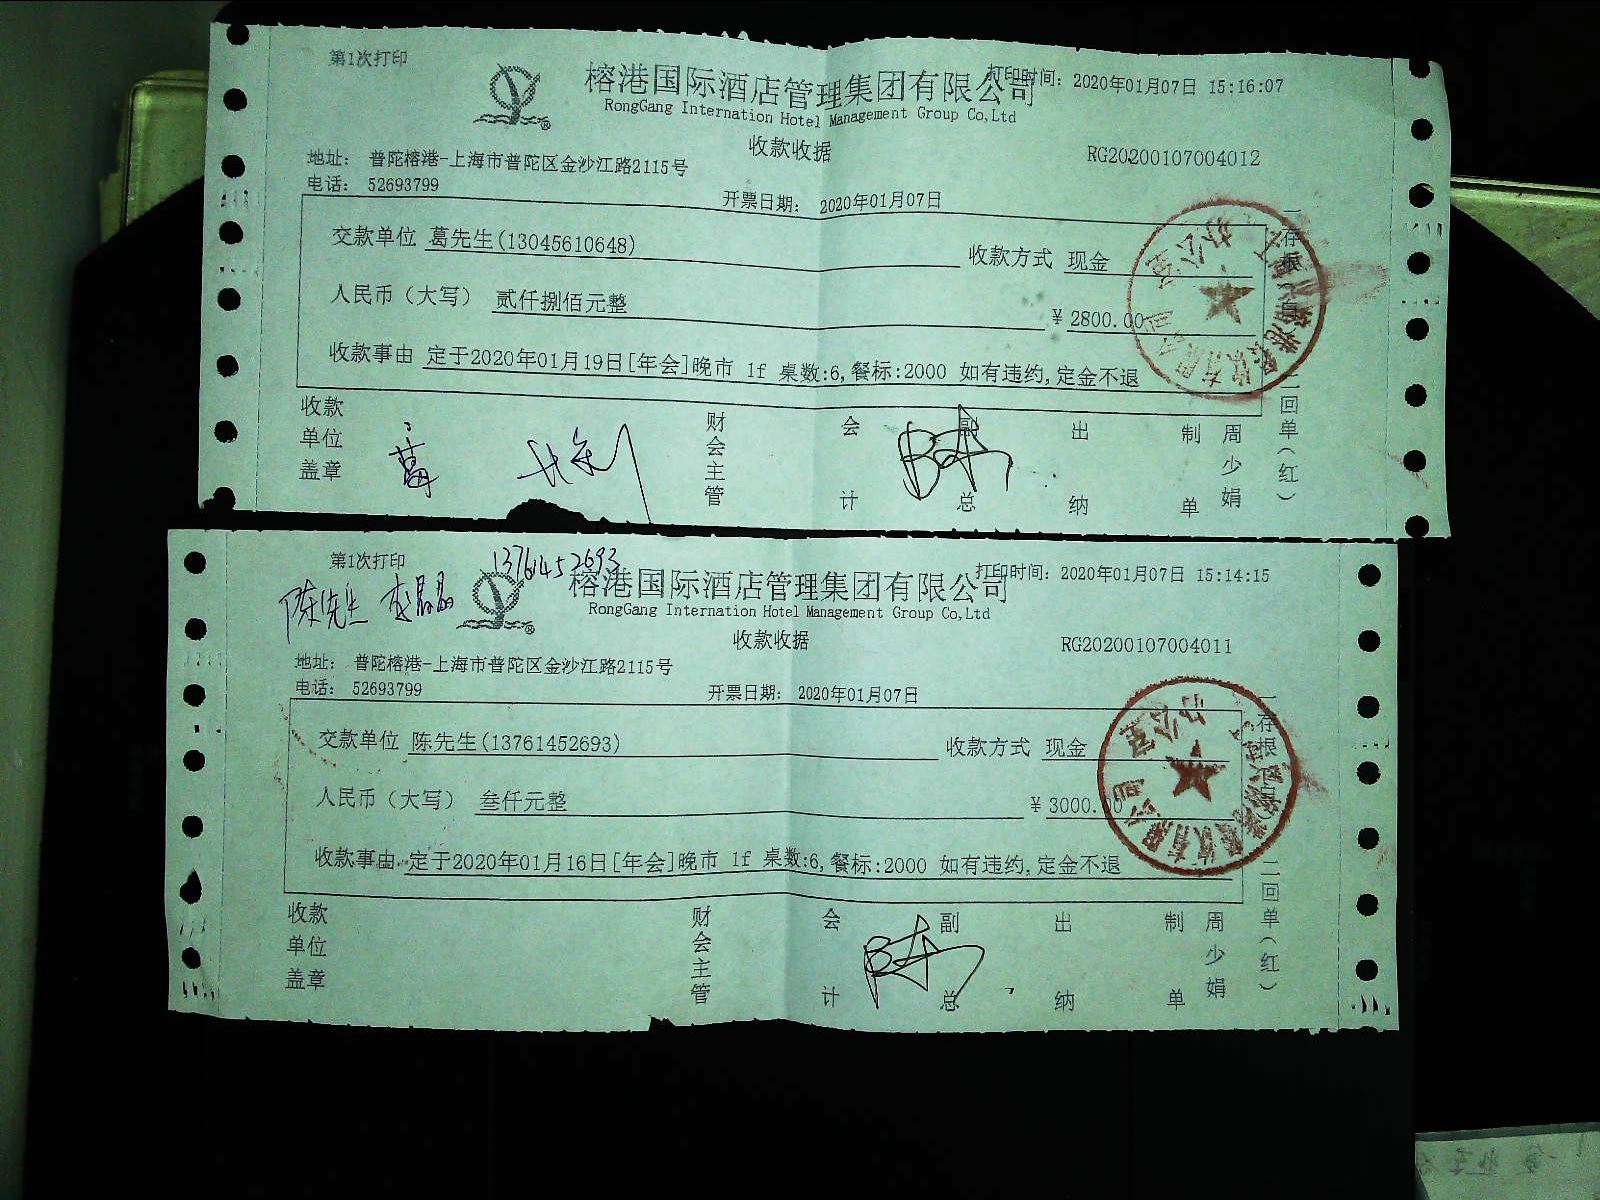 第1次打印
榕港国际酒店管理集团有限公司
打印时间：2020年01月07日 15:16:07
RongGang Internation Hotel Management Group Co,Ltd
收款收据
RG20200107004012
地址： 普陀榕港-上海市普陀区金沙江路2115号
电话： 52693799
开票日期： 2020年01月07日
交款单位 葛先生(13045610648) 收款方式 现金
人民币（大写） 贰仟捌佰元整 ￥2800.00
收款事由 定于2020年01月19日[年会]晚市 1f 桌数:6,餐标:2000 如有违约,定金不退
一存根（白）
二回单（红）
收款单位盖章
葛
财会主管
会计
副总
出纳
制单
周少娟
办公室
第1次打印
13761452693
榕港国际酒店管理集团有限公司
打印时间：2020年01月07日 15:14:15
陈先生 李晶晶
RongGang Internation Hotel Management Group Co,Ltd
收款收据
RG20200107004011
地址： 普陀榕港-上海市普陀区金沙江路2115号
电话： 52693799
开票日期： 2020年01月07日
交款单位 陈先生(13761452693) 收款方式 现金
人民币（大写） 叁仟元整 ￥3000.00
收款事由 定于2020年01月16日[年会]晚市 1f 桌数:6,餐标:2000 如有违约,定金不退
一存根（白）
二回单（红）
收款单位盖章
财会主管
会计
副总
出纳
制单
周少娟
办公室